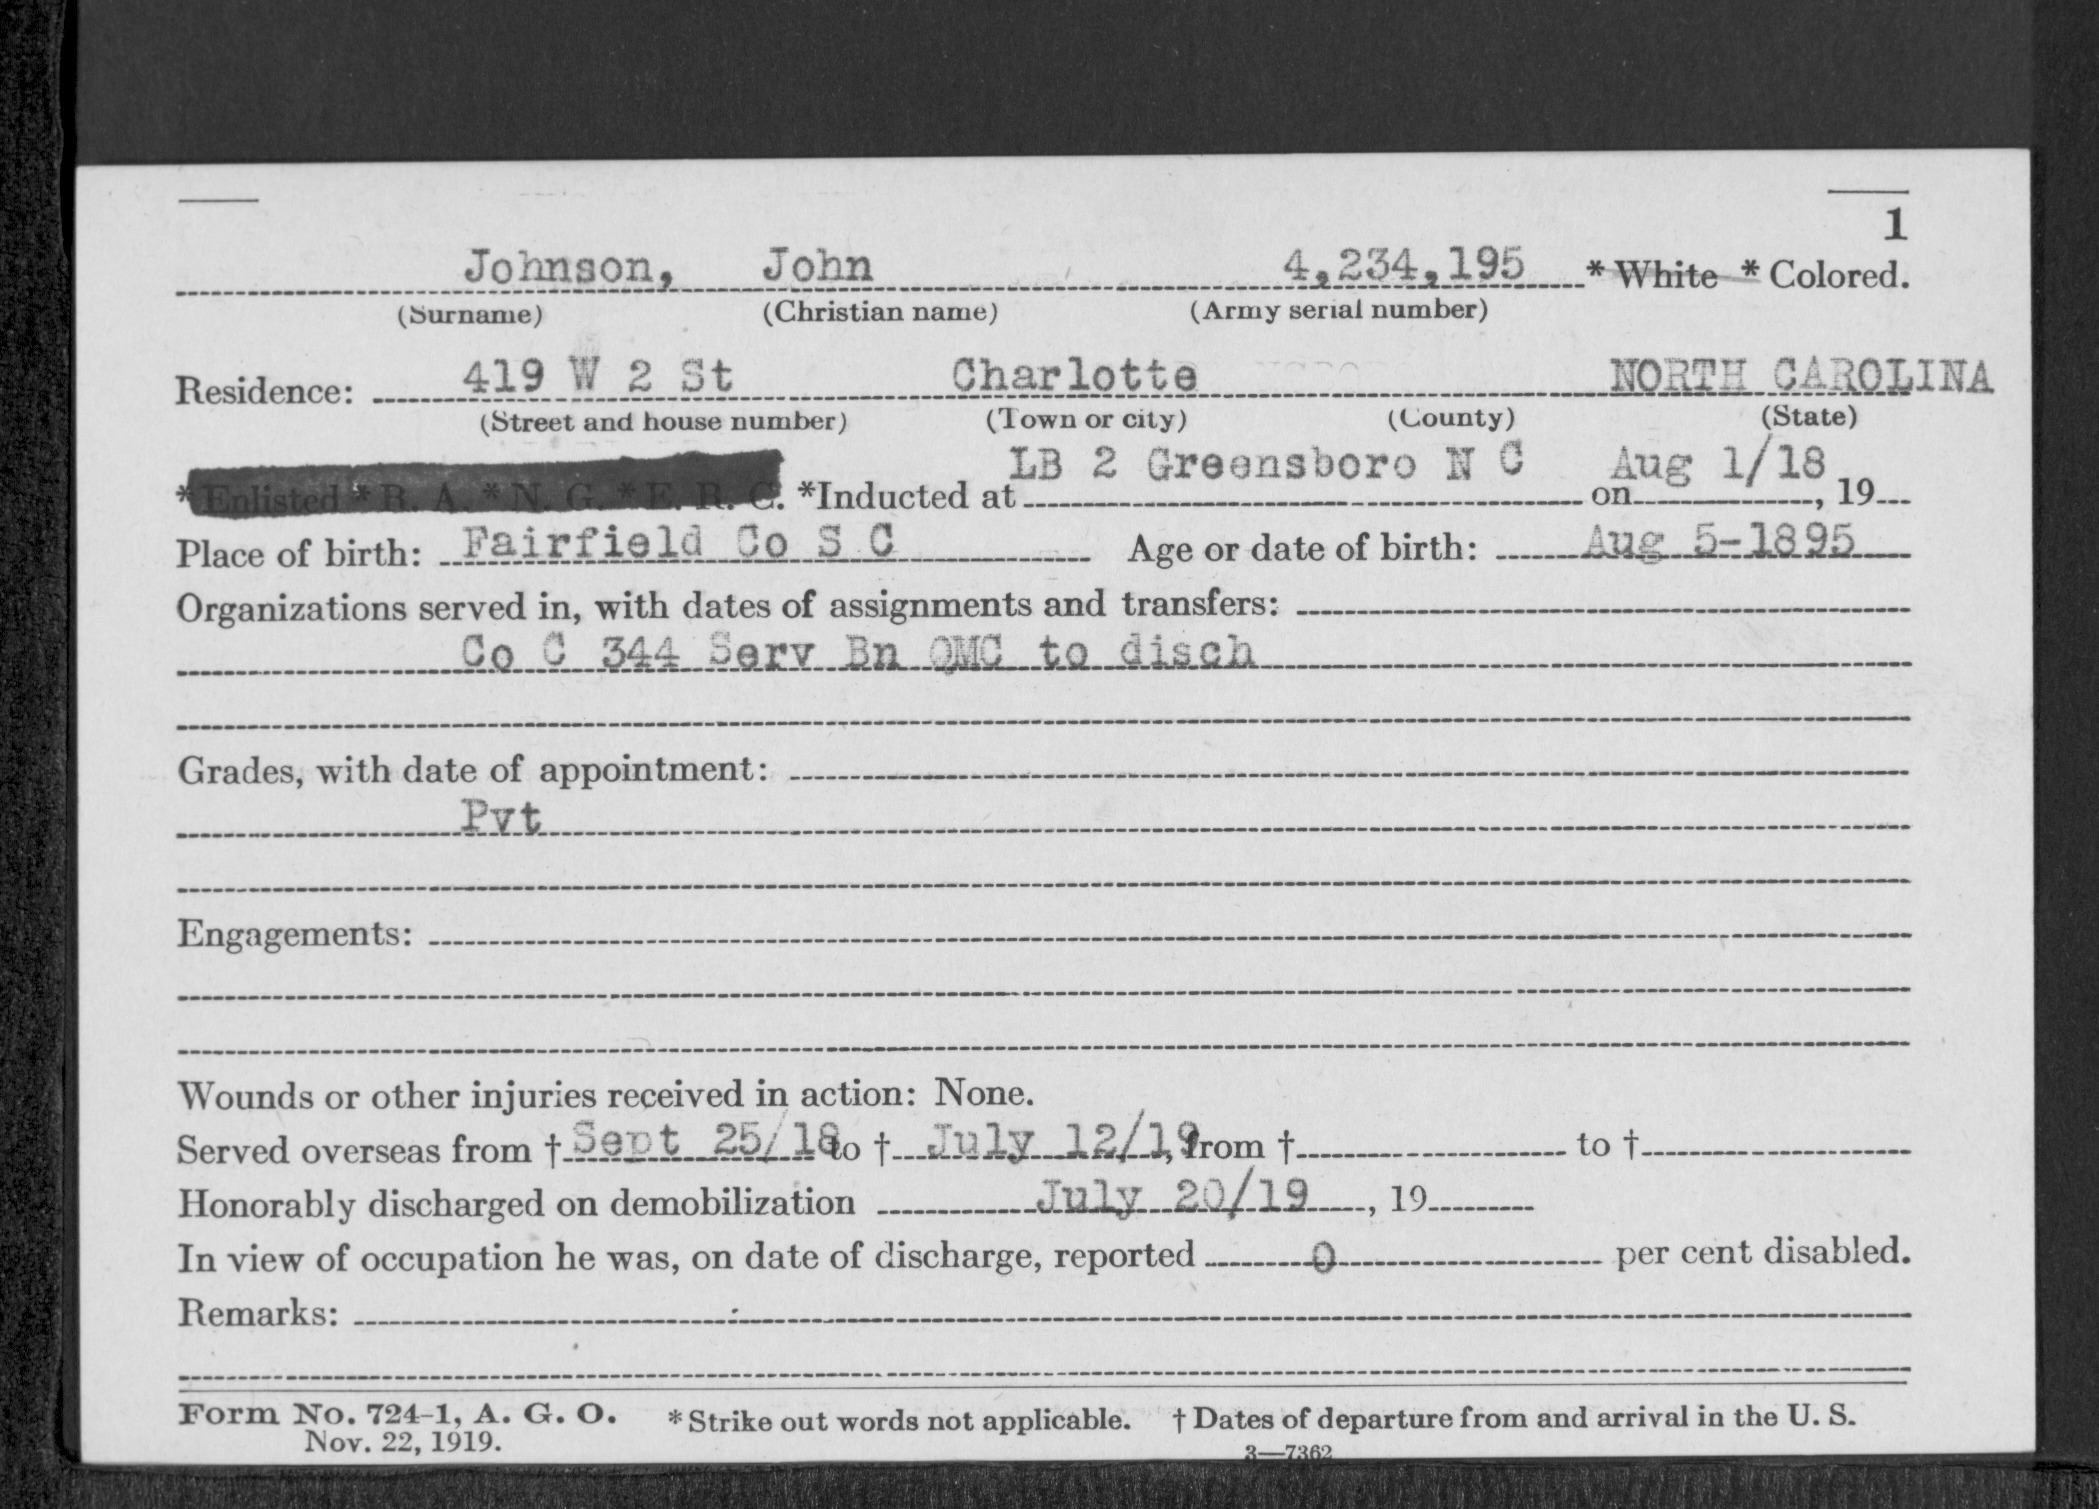 1
Johnson, John 4,234,195 * White * Colored.
(Surname) (Christian name) (Army serial number)
Residence: 419 W 2 St Charlotte NORTH CAROLINA
(Street and house number) (Town or city) (County) (State)
*Enlisted * R. A. * N. G. * E. R. C. *Inducted at LB 2 Greensboro N C on Aug 1/18, 19
Place of birth: Fairfield Co S C Age or date of birth: Aug 5-1895
Organizations served in, with dates of assignments and transfers:
Co C 344 Serv Bn QMC to disch
Grades, with date of appointment:
Pvt
Engagements:
Wounds or other injuries received in action: None.
Served overseas from † Sept 25/18 to † July 12/19, from † to †
Honorably discharged on demobilization July 20/19, 19
In view of occupation he was, on date of discharge, reported 0 per cent disabled.
Remarks:
Form No. 724-1, A. G. O. * Strike out words not applicable. † Dates of departure from and arrival in the U. S.
Nov. 22, 1919. 3—7362